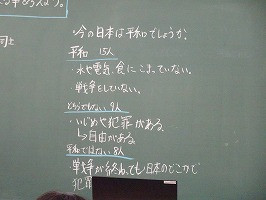 今の日本は平和でしょうか?
平和 15人
・水や電気、食にこまっていない。
戦争をしていない。
どちらでもない 9人
・いじめや犯罪がある。
↳自由がある。
平和ではない 8人
戦争が終わっても日本のどこかで
犯罪